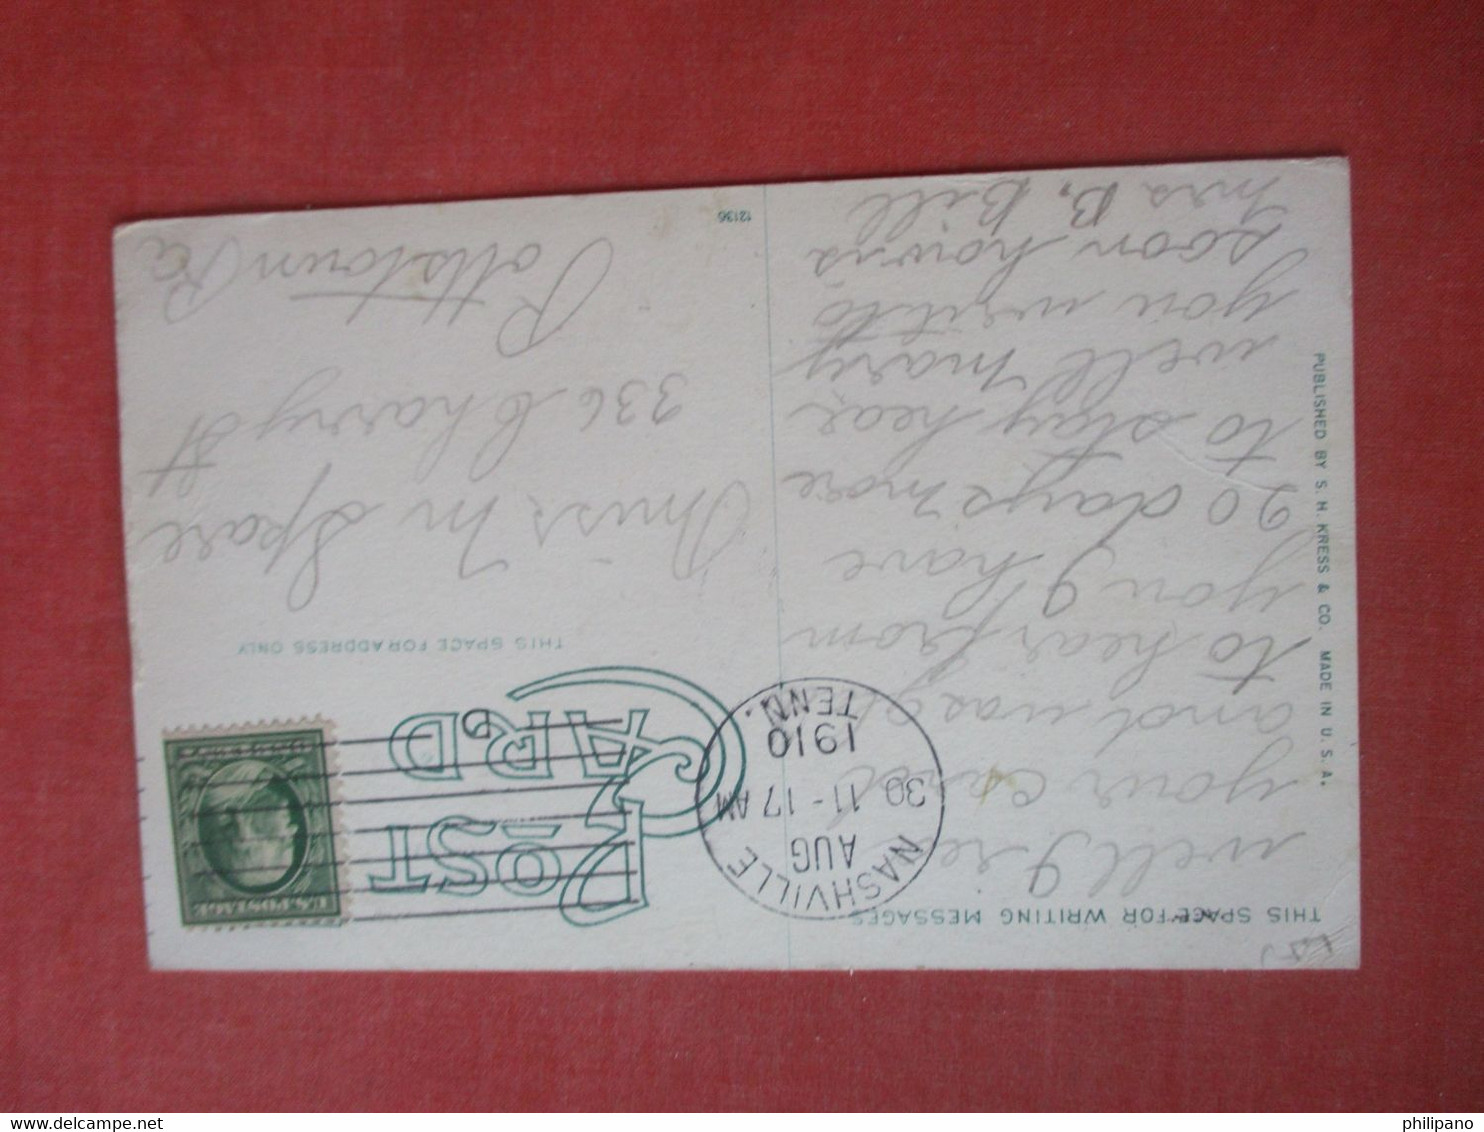 THIS SPACE FOR WRITING MESSAGES
well I rec
your card
and was glad
to hear from
you I have
20 days more
to stay hear
well Mary
you writ to
soon how is
Mrs B. Bill
PUBLISHED BY S. H. KRESS & CO. MADE IN U. S. A.
NASHVILLE
AUG
30 11-17 AM
1910
TENN.
POST
CARD
D
U.S. POSTAGE
THIS SPACE FOR ADDRESS ONLY
Miss M Spare
336 Charry St
Pottstown Pa
12136
philipano